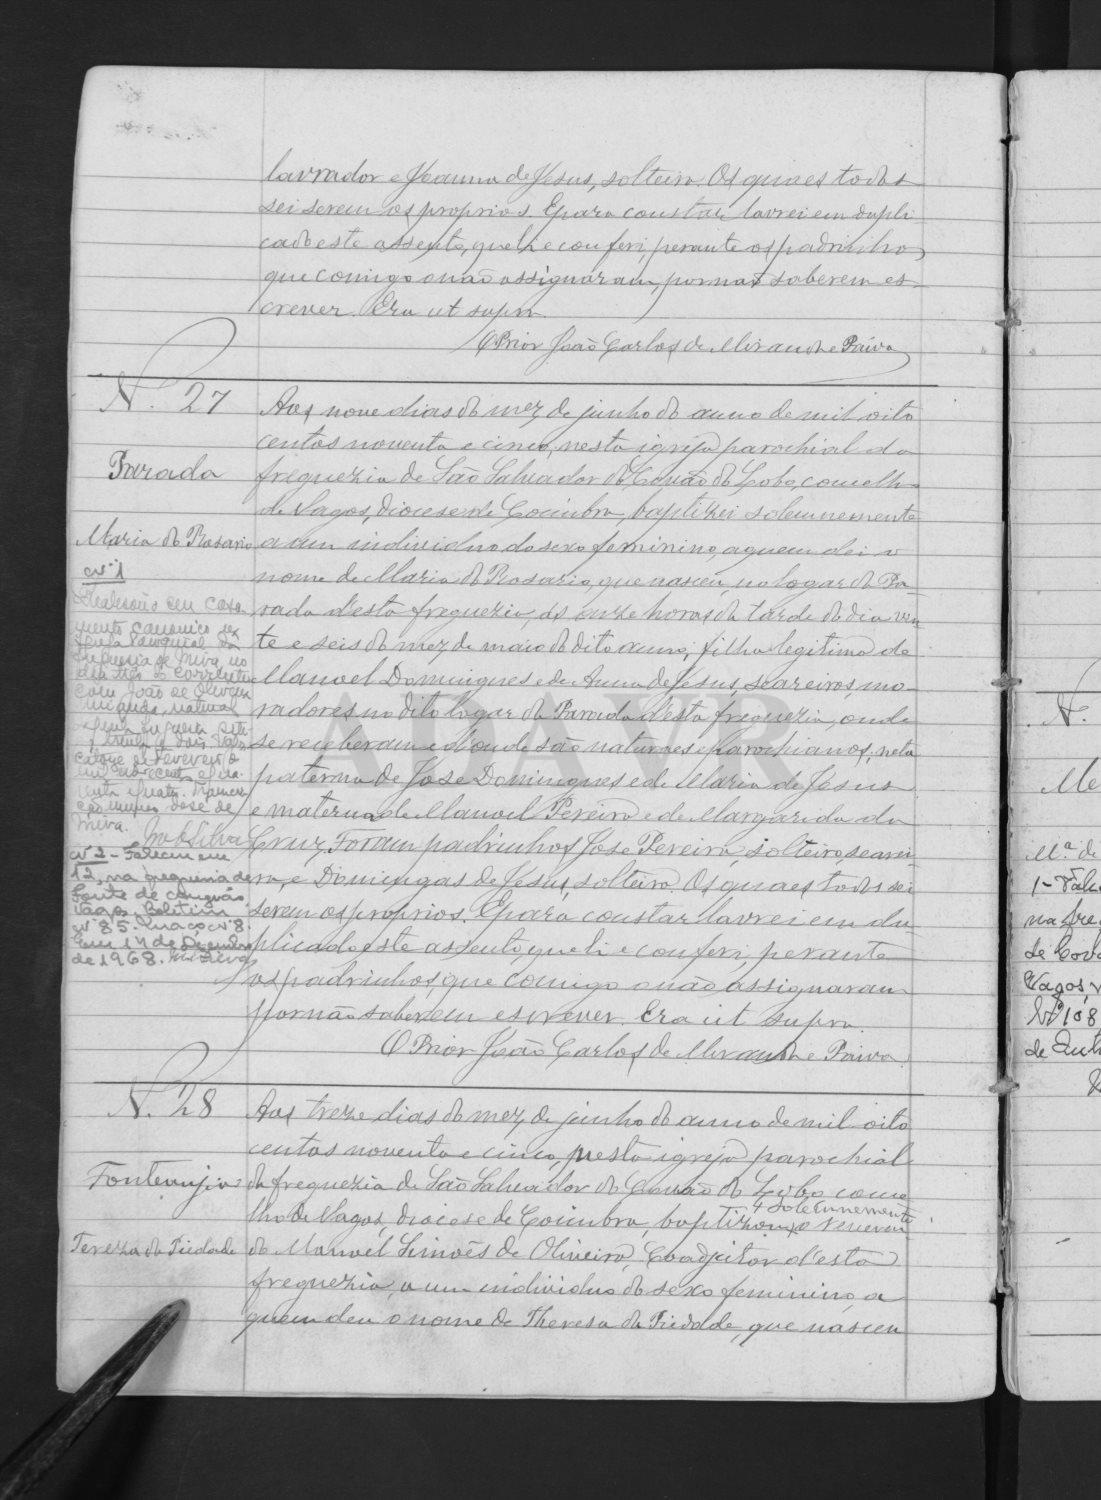 lavrador e Joanna de Jesus, solteira. Os quaes todos
sei serem os proprios. E para constar lavrei em dupli
cado este assento, que li e conferi, perante os padrinhos,
que comigo o não assignaram, por não saberem es-
crever. Era ut supra.
O Prior João Carlos de Miranda e Paiva
N. 27
Parada
Maria do Rosario
Aos nove dias do mez de junho do anno de mil oito
centos noventa e cinco, nesta igreja parochial da
freguezia de São Salvador do Covão do Lobo, concelho
de Vagos, diocese de Coimbra, baptizei solemnemente
a um individuo do sexo feminino, a quem dei o
nome de Maria do Rosario, que nasceu no logar da Pa-
rada d'esta freguezia, ás onze horas da tarde do dia vin
te e seis do mez de maio do dito anno, filha legitima de
Manoel Domingues e de Anna de Jesus, seareiros, mo-
radores no dito logar da Parada d'esta freguezia, onde
se receberam e d'onde são naturaes e parochianos, neta
paterna de José Domingues e de Maria de Jesus
e materna de Manoel Pereira e de Margarida da
Cruz. Foram padrinhos José Pereira, solteiro, searei-
ro, e Domingas de Jesus, solteira. Os quaes todos sei
serem os proprios. E para constar lavrei em du
plicado este assento, que li e conferi, perante
os padrinhos, que comigo o não assignaram
por não saberem escrever. Era ut supra.
O Prior João Carlos de Miranda e Paiva
nº 1
em casa-
mento canonico
Igreja Paroquial da
freguesia de Mira, no
dia três do corrente
com João de Oliveira
natural
e dois
catorze de Fevereiro de
mil novecentos e
Mira. Silva
nº 2 - Faleceu em
12, na freguesia de
Fonte de Angeão
Vagos. Boletim
nº 85. Maço nº 8.
Em 17 de Dezembro
de 1968. Silva
N. 28
Fontemija
Tereza da Piedade
Aos treze dias do mez de junho do anno de mil oito
centos noventa e cinco, nesta igreja parochial
da freguezia de São Salvador do Covão do Lobo, conce
lho de Vagos, diocese de Coimbra, baptizou solemnemente o reveren
do Manoel Simões de Oliveira, Coadjutor d'esta
freguezia, a um individuo do sexo feminino, a
quem deu o nome de Theresa da Piedade, que nasceu
N.
Mª de
1- Fale
na freg
de Cov
Vagos,
Nº 108
de Jul
ADAVR